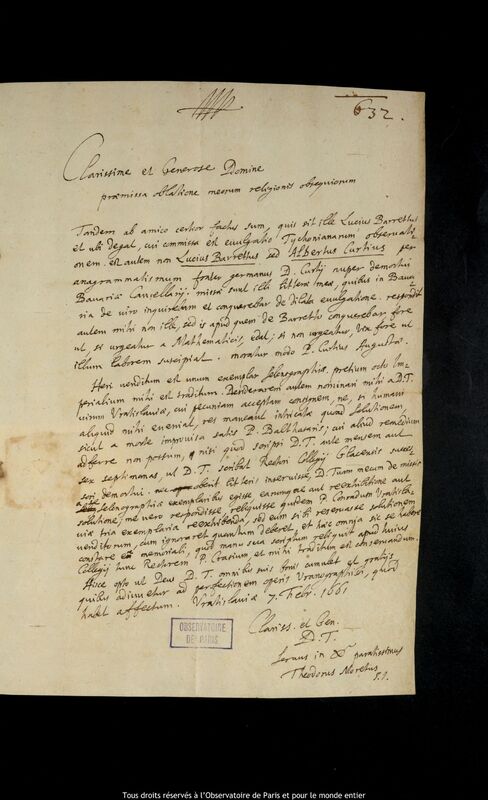 632.
Clarissime et Generose Domine
præmissa oblatione meorum religionis obsequiorum
Tandem ab amico certior factus sum, quis sit ille Lucius Barrettus
et ubi degat, cui commissa est evulgatio Tychonianarum observati
onem. est autem non Lucius Barrettus sed Albertus Curtius per
anagrammatismum frater germanus D. Curtij nuper demortui
Bavariæ Cancellarij. missæ sunt illæ litteræ meæ, quibus in Bava
ria de viro inquirebam et conquerebar de dilata evulgatione. respondit
autem mihi non ille, sed is apud quem de Barretto conquerebar, fore
ut si urgeatur a Mathematicis, edat; si non urgeatur, vix fore ut
illum laborem suscipiat. moratur modo P. Curtius Augustæ.
Heri venditum est unum exemplar Selenographiæ, pretium octo Im-
perialium mihi est traditum. Desiderarem autem nominari mihi a D.T.
virum Vratislaviæ, cui pecuniam acceptam consignem, ne, si humani
aliquid mihi eveniat, res maneat intricata quoad solutionem
sicut a morte improvisa satis P. Balthasaris; cui aliud remedium
adferre non possum, nisi quod scripsi D.T. ante mensem aut
sex septimanas, ut D.T. scribat Rectori Collegij Glacensis succes
sori demortui. litteris D. Tuam mecum de missis
Selenographiæ exemplaribus egisse, earumque aut reexhibitione aut
solutione; me vero respondisse, reliquisse quidem P. Conradum Vratisla
viæ tria exemplaria reexhibenda, sed eum sibi reservasse solutionem
venditorum, cum ignoraret quantum deberet, et hæc omnia sic se habere
constare memoriali, quod manu sua scriptum reliquit apud huius
Collegij tunc Rectorem P. Crasium et mihi traditum est conservandum.
Hisce opto ut Deus D.T. omnibus suis bonis cumulet et gratijs
quibus adiuvetur ad perfectionem operis Uranographici, quod
habet affectum. Vratislaviæ 7. Febr. 1661
Clariss. et Gen.
D.T.
servus in paratissimus
Theodorus Moretus
S.J.
OBSERVATOIRE
DE PARIS
Tous droits réservés à l'Observatoire de Paris et pour le monde entier